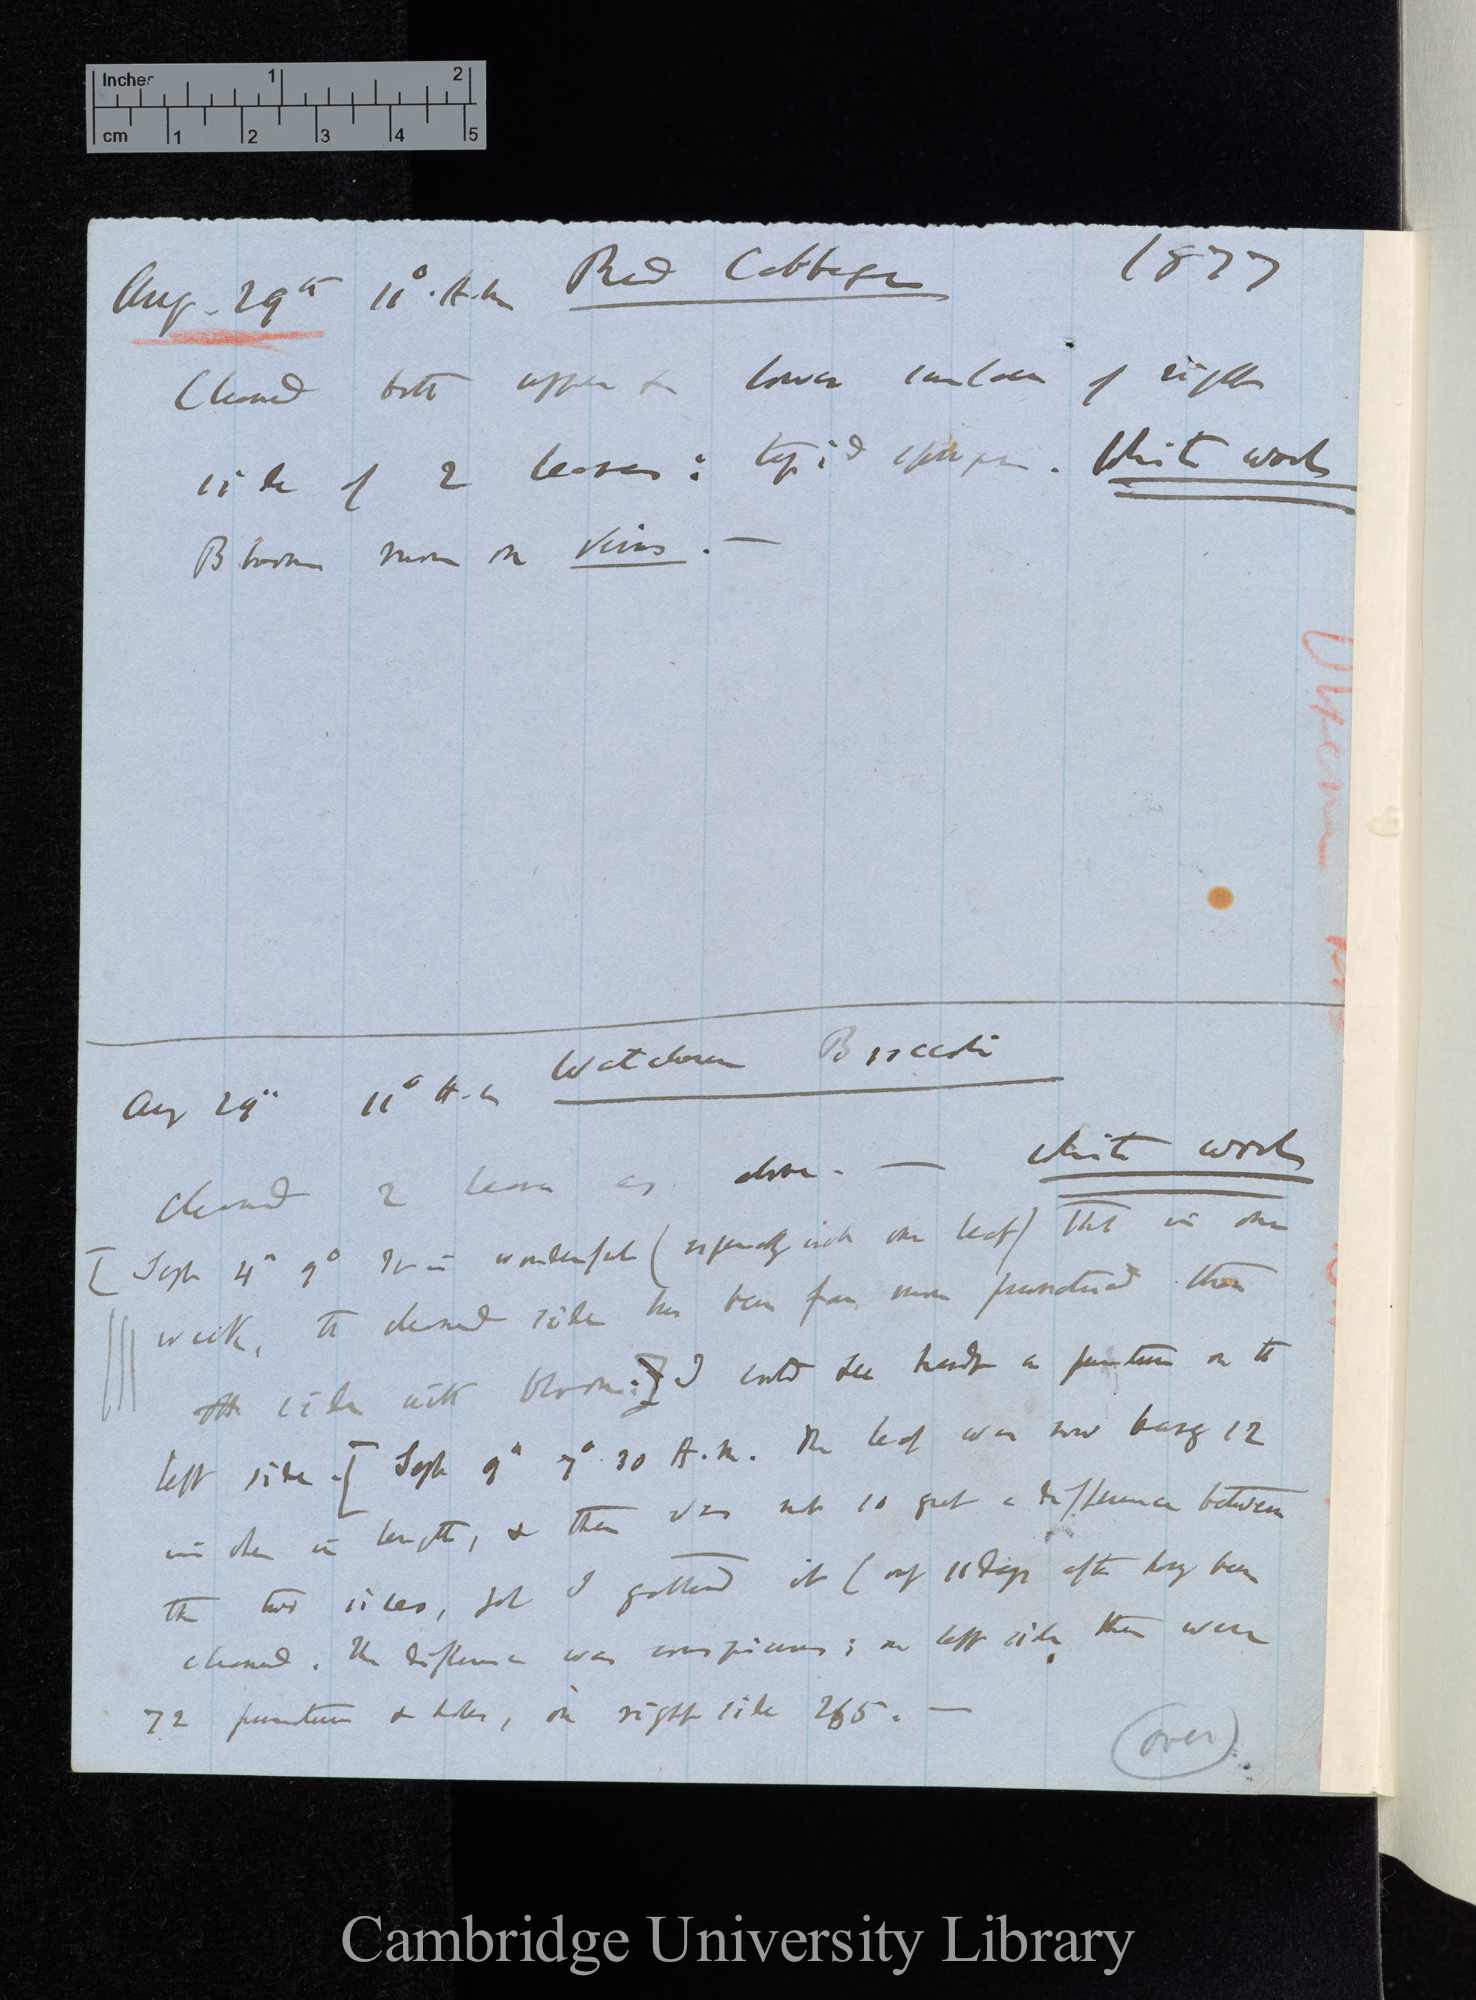 Inches 1 2
cm 1 2 3 4 5
1877
Aug. 29th 11°. A.m Red Cabbage
Cleaned both upper & lower surfaces of right
side of 2 leaves: tepid sponge. White wools
Bloom more on veins. —
Aug 29th 11° A.m Watchman Broccoli
cleaned 2 leaves as above. — white wools
[Sept 4th 9° It is wonderful (especially with one leaf) that in one
week, the cleaned side has been far more punctured than
the side with bloom:] I could see hardly a puncture on the
left side. [Sept 9th 7° 30 A.m. The leaf was now being 12
inches in length, & there was not so great a difference between
the two sides, I gathered it (only 11 days after being been
cleaned. The difference was conspicuous; on left side there were
72 punctures & holes, on right side 265. —
(over)
Cambridge University Library